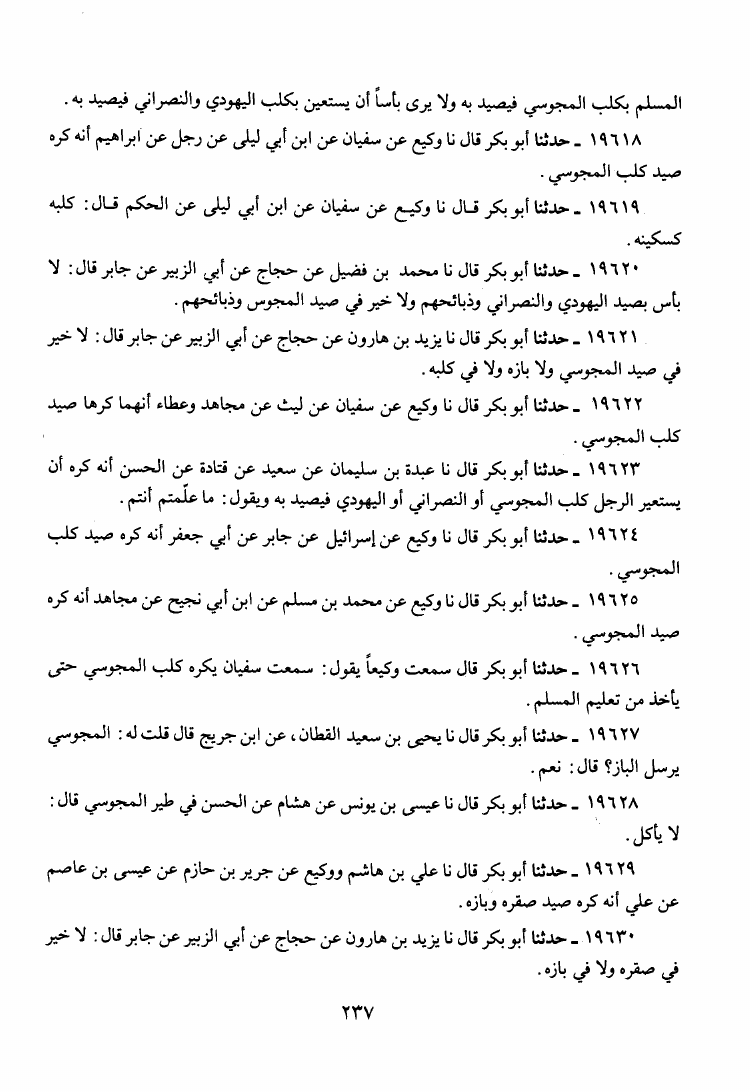 المسلم بكلب المجوسي فيصيد به ولا يرى بأساً أن يستعين بكلب اليهودي والنصراني فيصيد به.
١٩٦١٨ ـ حدثنا أبو بكر قال نا وكيع عن سفيان عن ابن أبي ليلى عن رجل عن ابراهيم أنه كره
صيد كلب المجوسي.
١٩٦١٩ ـ حدثنا أبو بكر قال نا وكيع عن سفيان عن ابن أبي ليلى عن الحكم قال: كلبه
كسكينه.
١٩٦٢٠ ـ حدثنا أبو بكر قال نا محمد بن فضيل عن حجاج عن أبي الزبير عن جابر قال: لا
بأس بصيد اليهودي والنصراني وذبائحهم ولا خير في صيد المجوس وذبائحهم.
١٩٦٢١ ـ حدثنا أبو بكر قال نا يزيد بن هارون عن حجاج عن أبي الزبير عن جابر قال: لا خير
في صيد المجوسي ولا بازه ولا في كلبه.
١٩٦٢٢ ـ حدثنا أبو بكر قال نا وكيع عن سفيان عن ليث عن مجاهد وعطاء أنهما كرها صيد
كلب المجوسي.
١٩٦٢٣ ـ حدثنا أبو بكر قال نا عبدة بن سليمان عن سعيد عن قتادة عن الحسن أنه كره أن
يستعير الرجل كلب المجوسي أو النصراني أو اليهودي فيصيد به ويقول: ما علّمتم أنتم.
١٩٦٢٤ ـ حدثنا أبو بكر قال نا وكيع عن إسرائيل عن جابر عن أبي جعفر أنه كره صيد كلب
المجوسي.
١٩٦٢٥ ـ حدثنا أبو بكر قال نا وكيع عن محمد بن مسلم عن ابن أبي نجيح عن مجاهد أنه كره
صيد المجوسي.
١٩٦٢٦ ـ حدثنا أبو بكر قال سمعت وكيعاً يقول: سمعت سفيان يكره كلب المجوسي حتى
يأخذ من تعليم المسلم.
١٩٦٢٧ ـ حدثنا أبو بكر قال نا يحيى بن سعيد القطان، عن ابن جريج قال قلت له: المجوسي
يرسل الباز؟ قال: نعم.
١٩٦٢٨ ـ حدثنا أبو بكر قال نا عيسى بن يونس عن هشام عن الحسن في طير المجوسي قال:
لا يأكل.
١٩٦٢٩ ـ حدثنا أبو بكر قال نا علي بن هاشم ووكيع عن جرير بن حازم عن عيسى بن عاصم
عن علي أنه كره صيد صقره وبازه.
١٩٦٣٠ ـ حدثنا أبو بكر قال نا يزيد بن هارون عن حجاج عن أبي الزبير عن جابر قال: لا خير
في صقره ولا في بازه.
٢٣٧